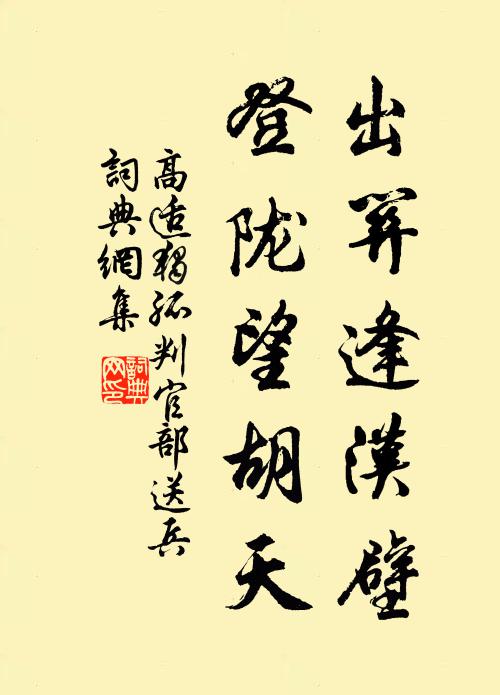 出關逢漢壁
登陇望胡天
高适獨孤判官部送兵
詞典網集
詞典
网印